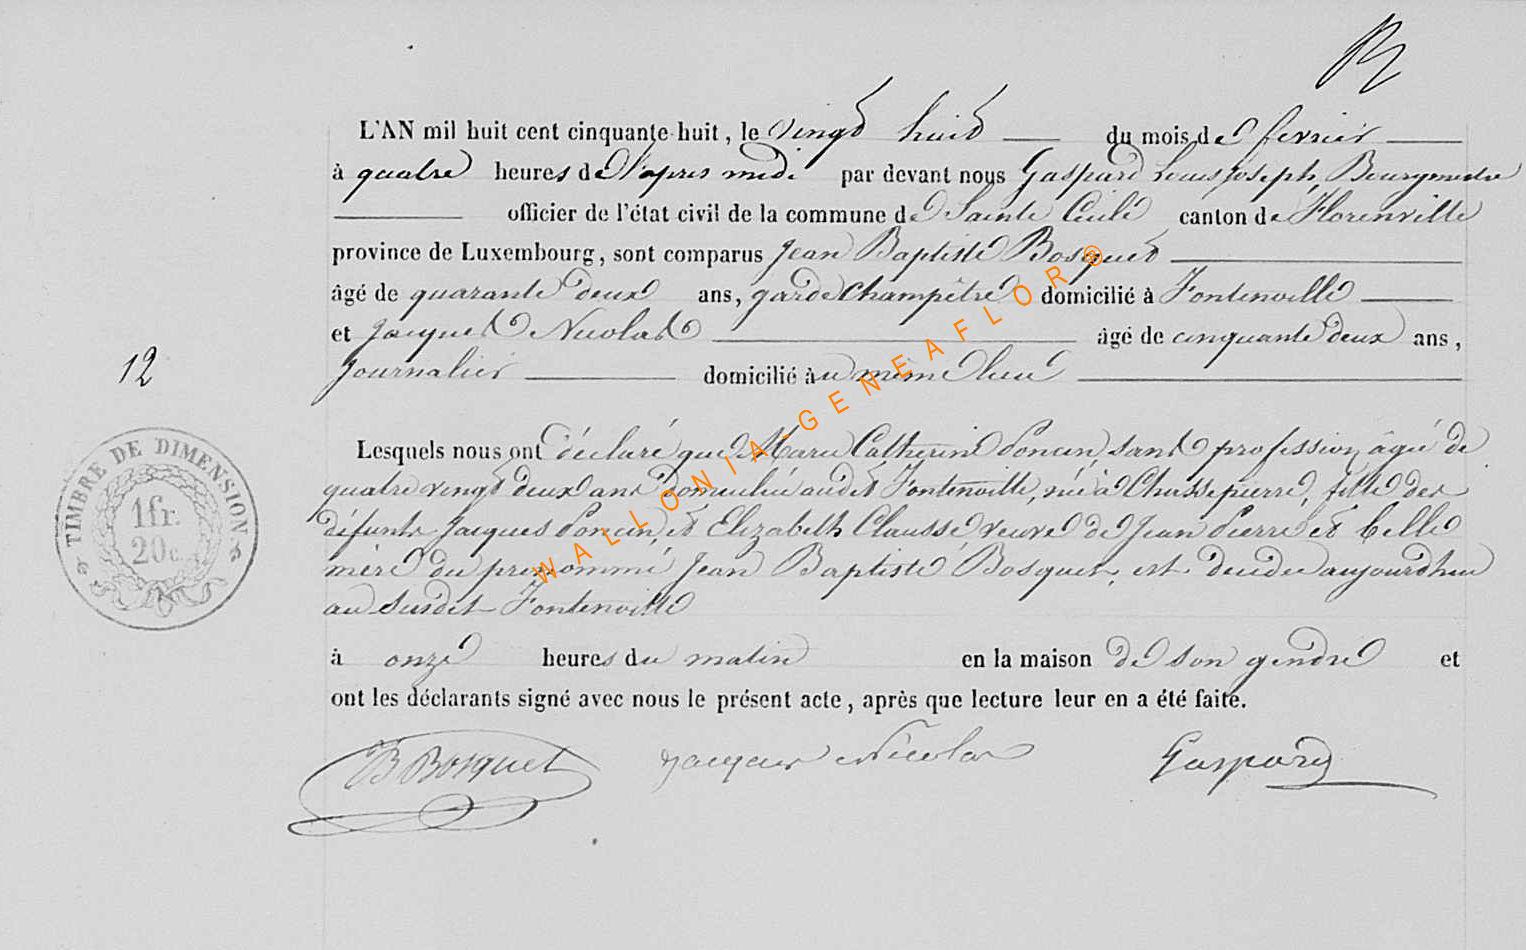 L'AN mil huit cent cinquante-huit, le vingt huit du mois de fevrier
à quatre heures de l'apres midi par devant nous Gaspard Louis Joseph, Bourgmestre
officier de l'état civil de la commune de Sainte Cécile canton de Florenville
province de Luxembourg, sont comparus Jean Baptiste Bosquet
âgé de quarante deux ans, garde champêtre domicilié à Fontenoille
et Jacques Nicolas âgé de cinquante deux ans,
journalier domicilié au même lieu
12
Lesquels nous ont déclaré que Marie Catherine Poncin, sans profession, âgée de
quatre vingt deux ans domiciliée audit Fontenoille, née à Chassepierre, fille des
défunts Jacques Poncin, et Elizabeth Clausse veuve de Jean Pierre et belle
mère du prénommé Jean Baptiste Bosquet, est décédée aujourd'hui
au susdit Fontenoille
à onze heures du matin en la maison de son gendre et
ont les déclarants signé avec nous le présent acte, après que lecture leur en a été faite.
TIMBRE DE DIMENSION
1 fr.
20 c.
JB Bosquet Jacques Nicolas Gaspard
WALLONIA-GENEAFLOR®